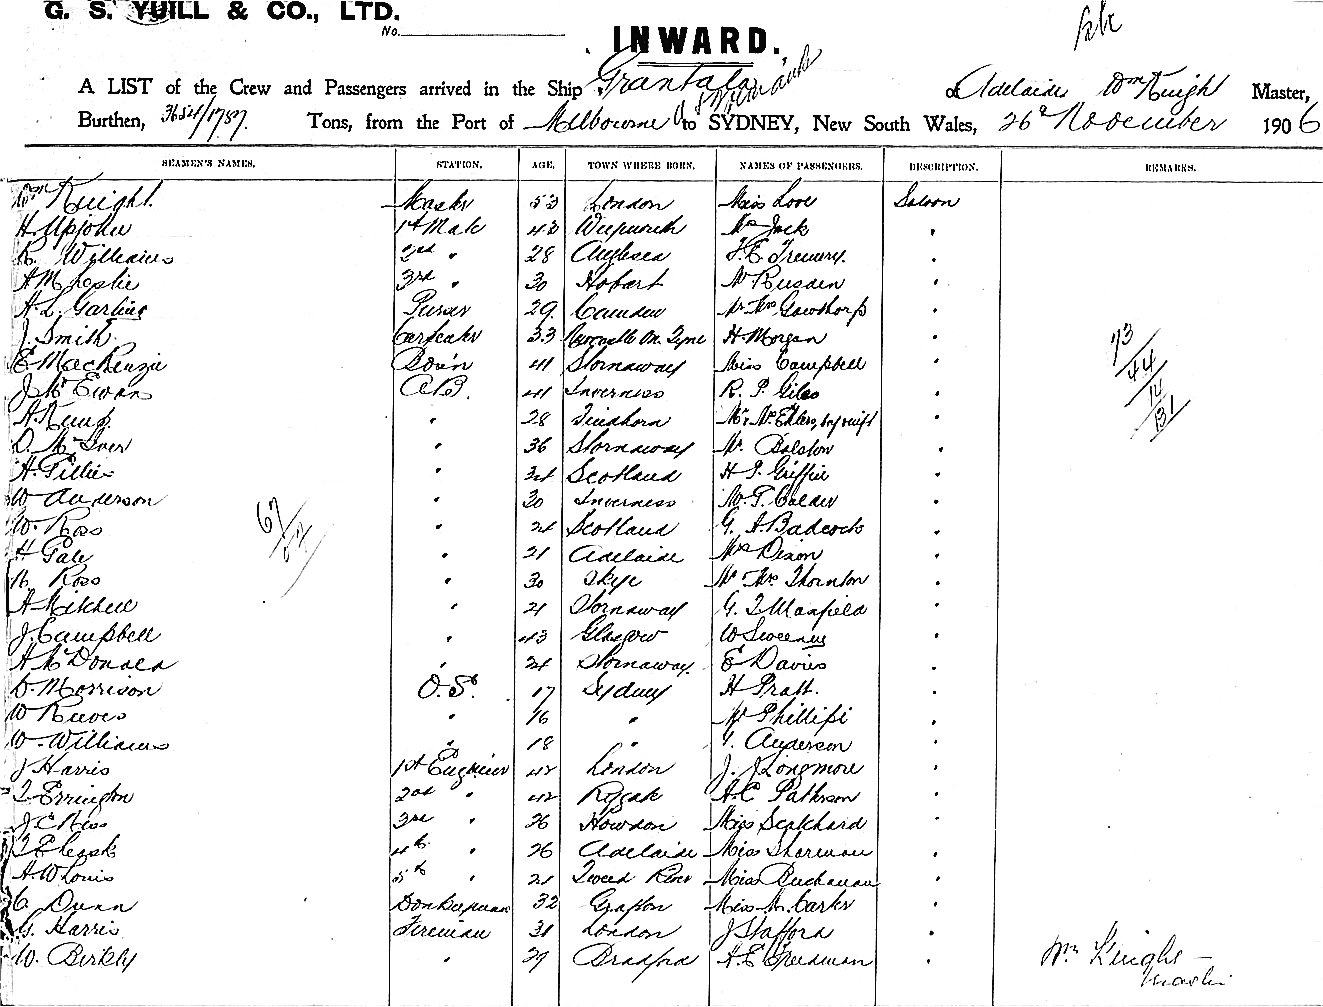 G. S. YUILL & CO., LTD.
No.
INWARD.
A LIST of the Crew and Passengers arrived in the Ship Grantala of Adelaide Wm Knight Master,
Burthen, 3654/1787 Tons, from the Port of Melbourne to SYDNEY, New South Wales, 26th November 1906
SEAMEN'S NAMES. STATION. AGE. TOWN WHERE BORN. NAMES OF PASSENGERS. DESCRIPTION. REMARKS.
Wm Knight. Master 53 London Miss Love Saloon
H. Upjohn 1st Mate 43 Mr Jack "
R. Williams 2nd " 28 Anglesea F. E. Trewery. "
A McLeslie 3rd " 30 Hobart Mr Rusden "
A. L. Garling Purser 29 Camden Mr Mrs Gawthorp "
J. Smith. Carpenter 33 Newcastle On Tyne H. Morgan "
E MacKenzie Bos'n 41 Stornaway Miss Campbell "
J. McEwan A.B. 41 Inverness R. P. Giles "
A. Kemp. " 28 Findhorn Mr Mrs "
D. McIver " 36 Stornaway Mr. Balston "
A. Gillies " 24 Scotland H. J. Griffin "
W Anderson " 30 Inverness W. T. Calder "
W. Ross " 24 Scotland G. A Badcock "
H Gale " 21 Adelaide Mrs Dixon "
N. Ross " 30 Skye Mr Mrs Thornton "
A Mitchell " 21 Stornaway G. T Maxfield "
J. Campbell " 43 Glasgow W Sweeney "
A McDonald " 24 Stornaway. E Davies "
D. Morrison O.S. 17 Sydney H Pratt. "
W Reeves " 16 " Mr Phillips "
W. Williams " 18 " Anderson "
J Harris 1st Engineer 42 London J. Longmore "
T Errington 2nd " 42 Ryeale A. C Patterson "
J. C Ross 3rd " 26 Howdon Miss "
4th " 26 Adelaide Miss Sharman "
A. W Louis 5th " 21 Tweed River Miss Buchanan "
C Dunn Donkeyman 32 Grafton Miss M. Carter "
G. Harris Fireman 31 London J Stafford "
W. Birkby " 29 Bradford A. E Freedman "
73
44
14
131
67
Wm Knight
Master